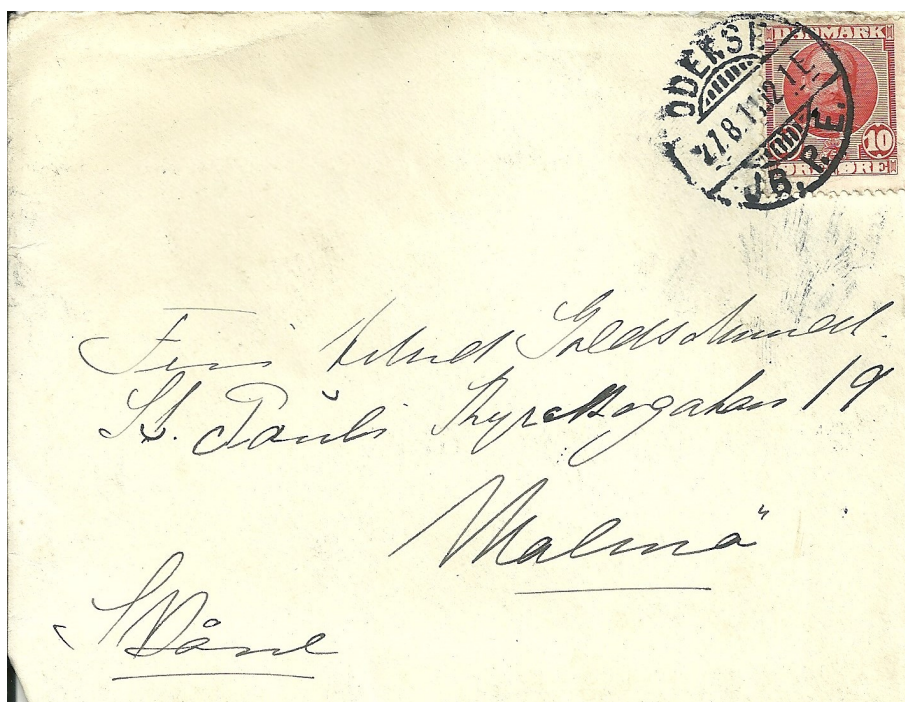 ODENSE
27.8.11 12 1 E
JB. P. E.
DANMARK
10
ØRE ØRE
Goldschmidt
St. Pauli Kyrkogatan 19
Malmö
Skåne